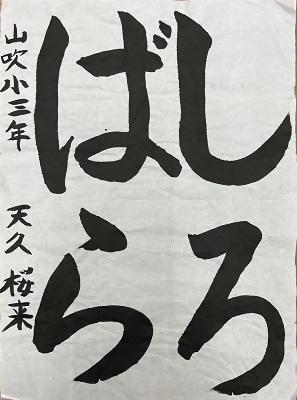 しろ
ばら
山吹小三年 天久桜来